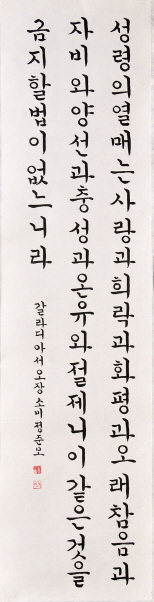 성령의열매는사랑과희락과화평과오래참음과
자비와양선과충성과온유와절제니이같은것을
금지할법이없느니라
갈라디아서오장소미정준모